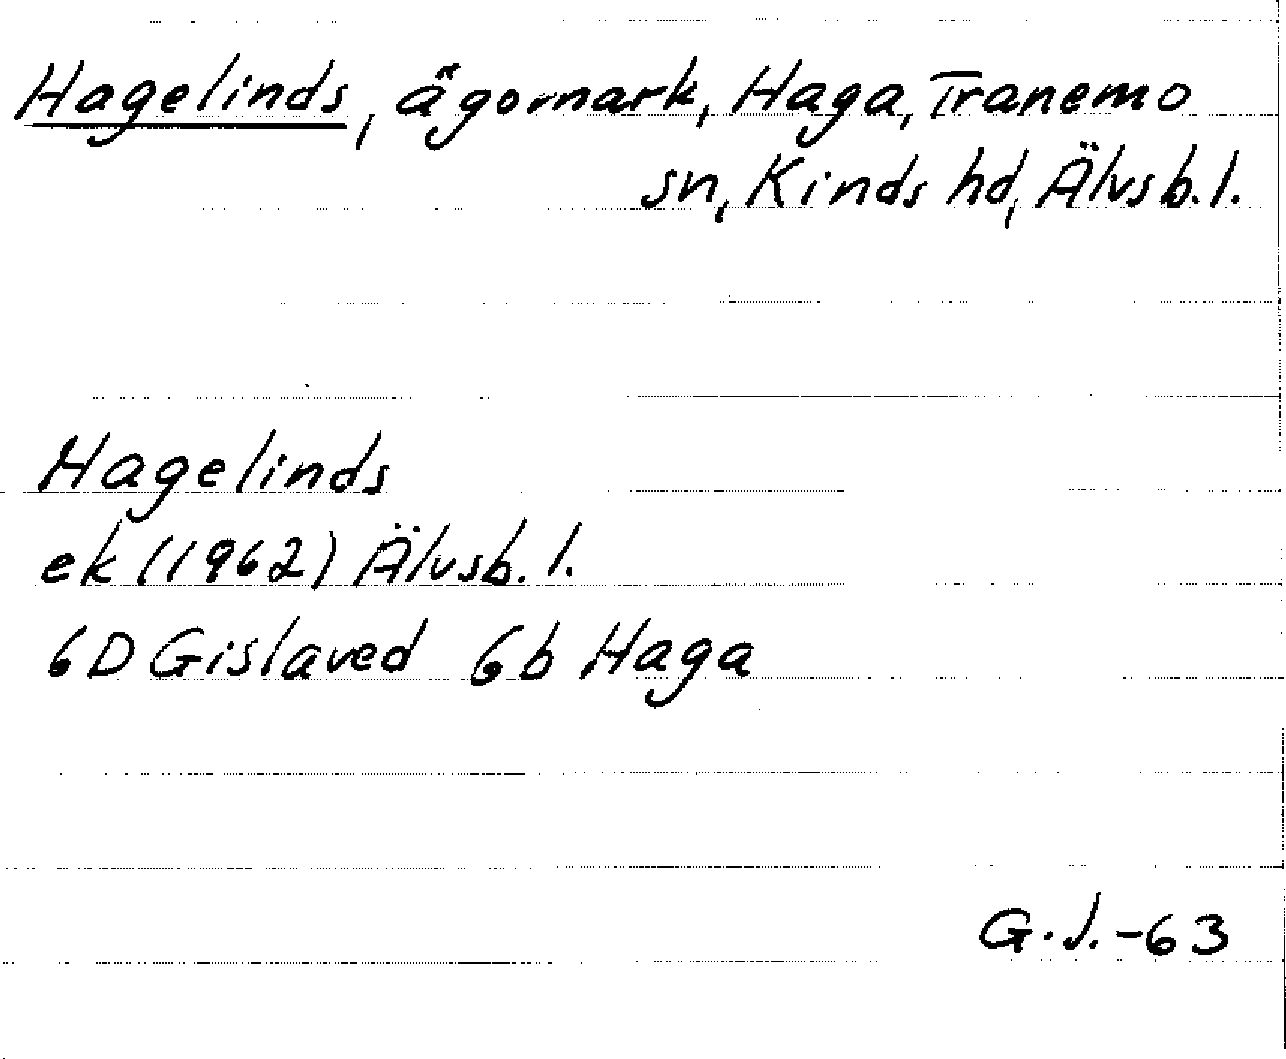 Hagelinds, ägomark, Haga, Tranemo
sn, Kinds hd, Älvsb. l.
Hagelinds
ek (1962) Älvsb. l.
6D Gislaved 6b Haga
G.J.-63